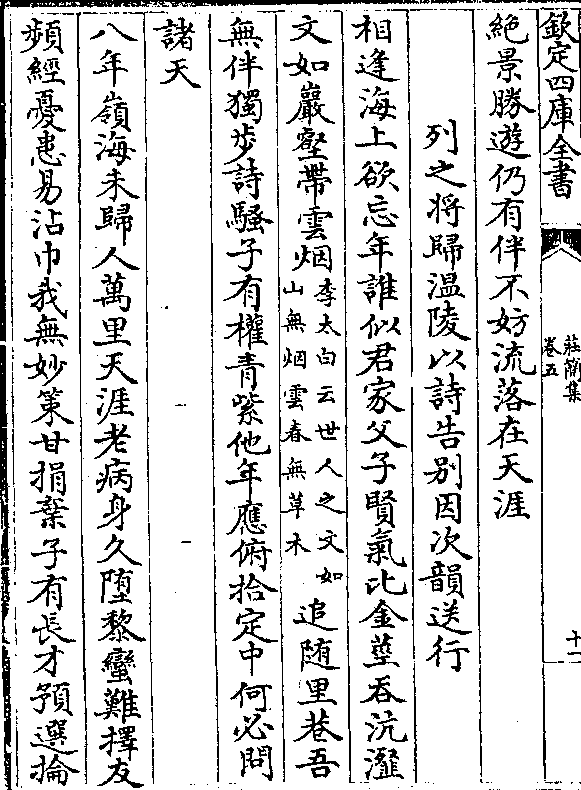 欽定四庫全書
莊簡集
卷五
十一
絶景勝遊仍有伴不妨流落在天涯
列之将歸温陵以詩告别因次韻送行
相逢海上欲忘年誰似君家父子賢氣比金莖吞沆瀣
文如巖壑帶雲烟李太白云世人之文如山無烟雲春無草木追随里巷吾
無伴獨步詩騷子有權青紫他年應俯拾定中何必問
諸天
八年嶺海未歸人萬里天涯老病身久堕黎蠻難擇友
頻經憂患易沾巾我無妙策甘捐棄子有長才預選掄